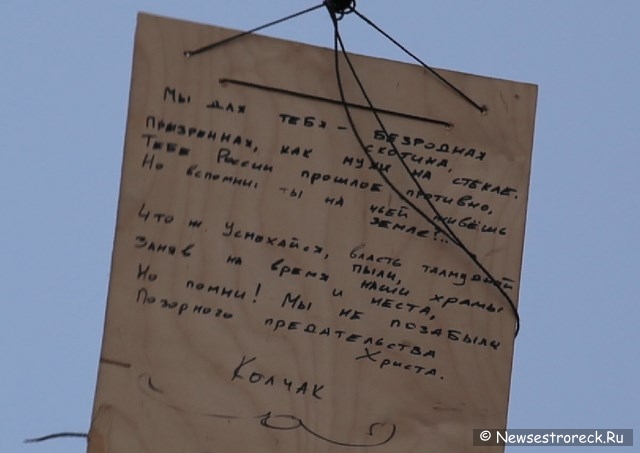 Мы для тебя – безродная
скотина,
Призренная, как мухи на стекле.
Тебе России прошлое противно,
Но вспомни: ты на чьей живёшь
земле?...
Что ж. Усмехайся, власть талмудной
пыли,
Заняв на время наши храмы
и места,
Но помни! Мы не позабыли
Позорного предательства
Христа.
Колчак
© Newsestroreck.Ru